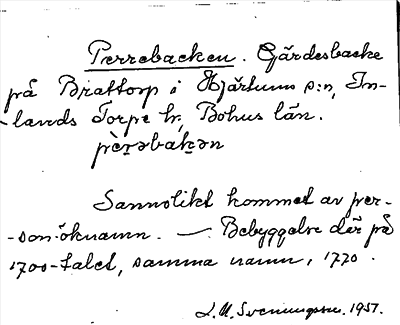 Perrebacken. Gärdesbacke
på Brattorp i Hjärtums s:n, In-
-lands Torpe hr, Bohus län.
pèr̤əbak̤ən
Sannolikt kommet av per-
-son-öknamn. — Bebyggelse där på
1700-talet, samma namn, 1770.
S. M. Svenungsson. 1957.